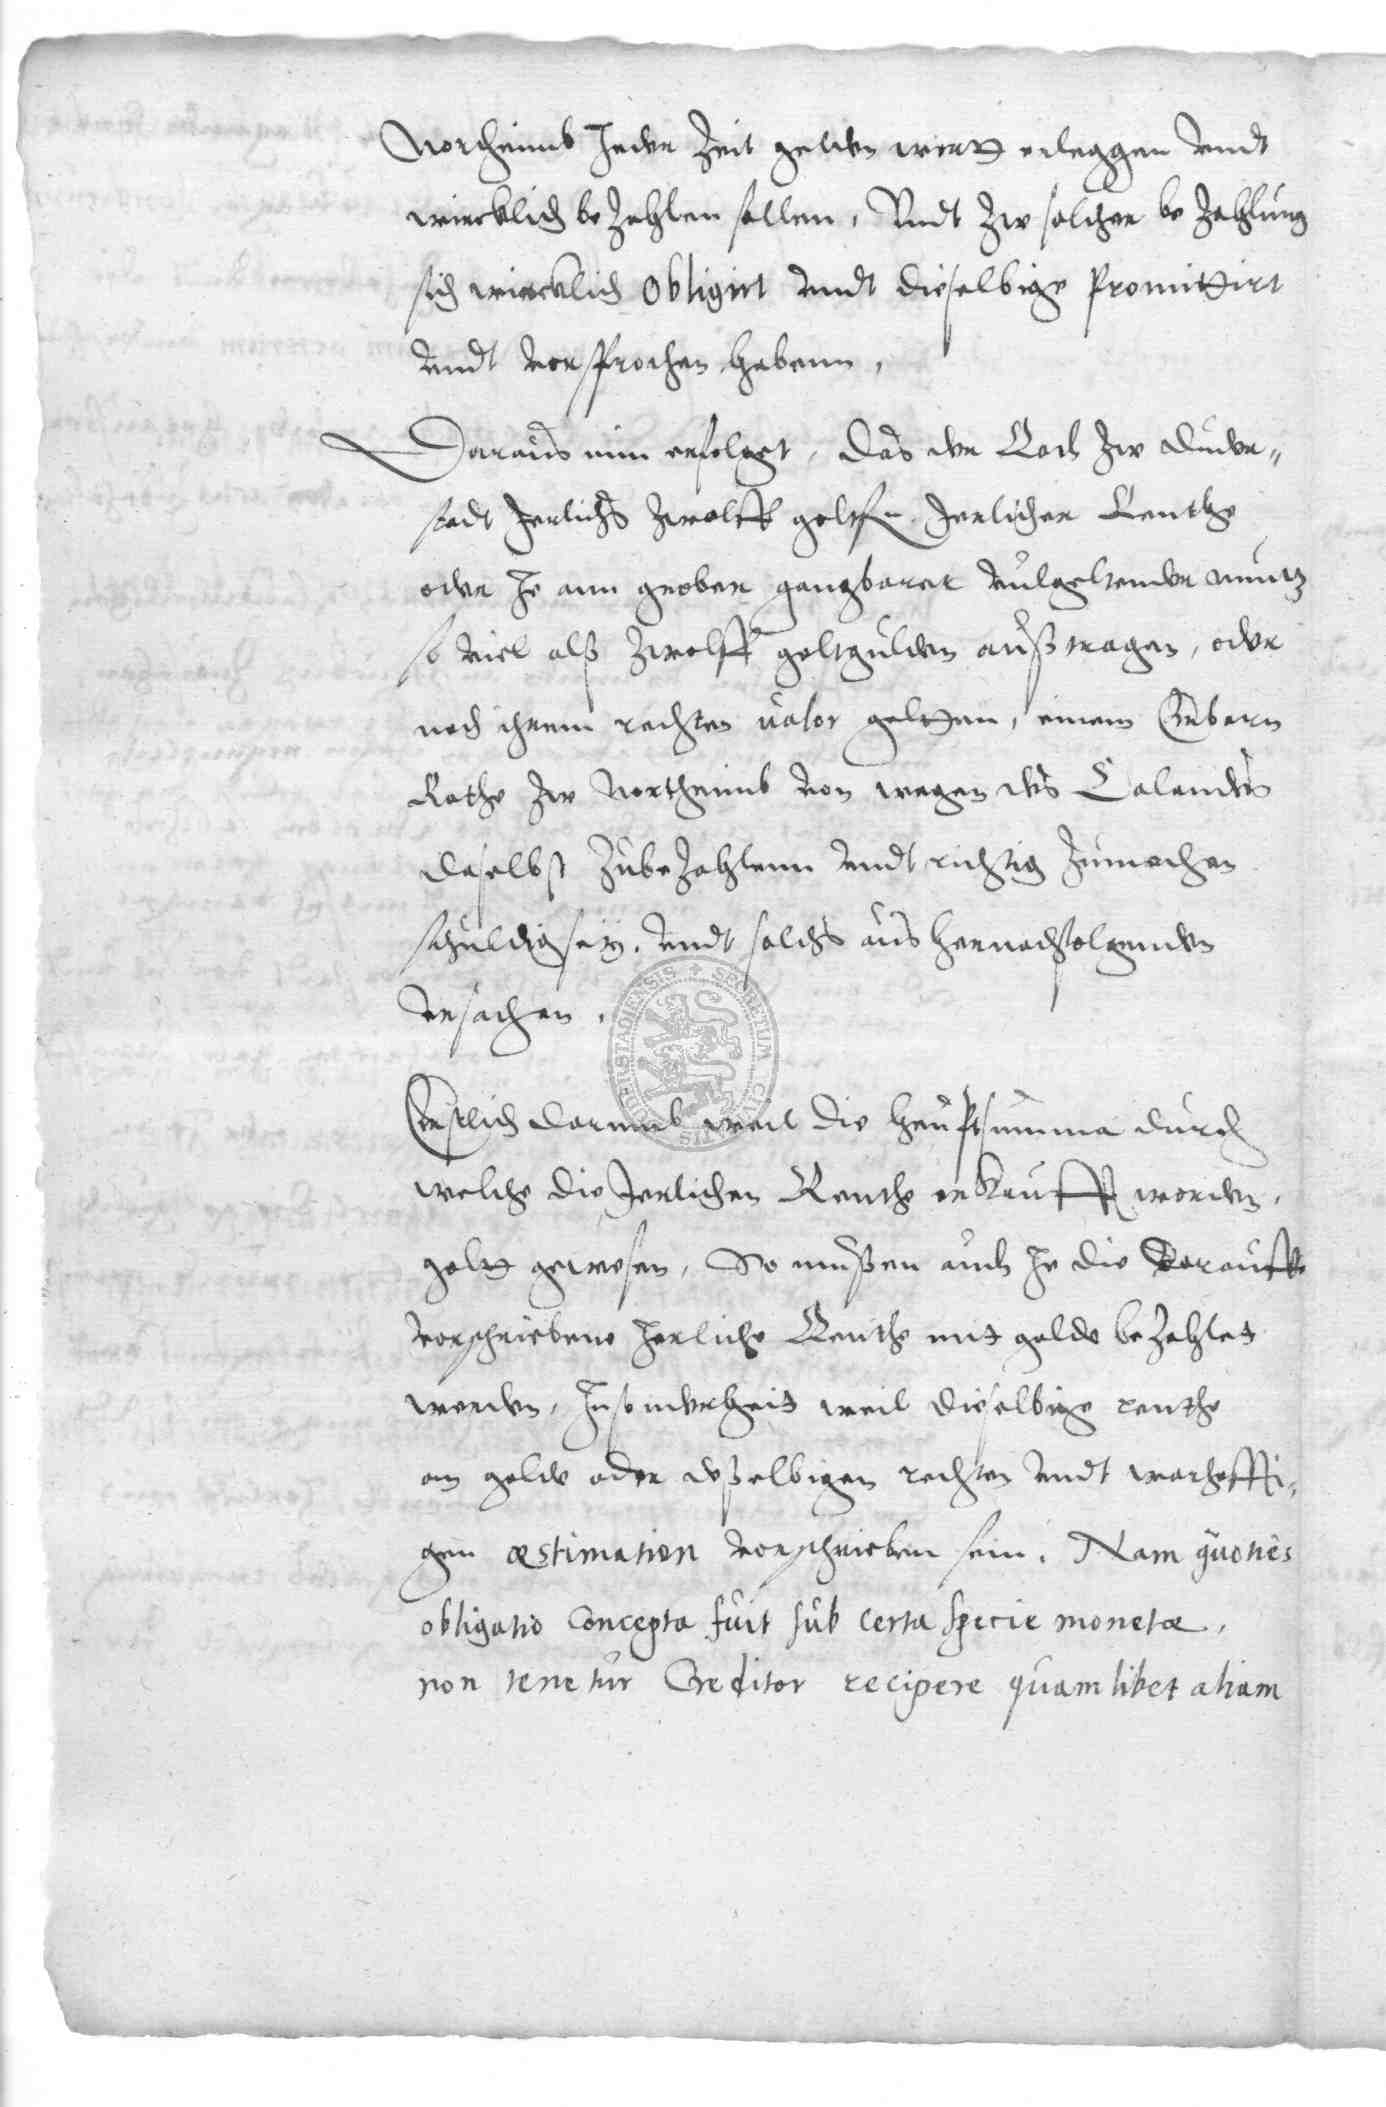 Northeimb Jeder Zeit gelden wirtt erleggen undt
wircklich bezahlen sollen, Undt Zw solcher bezahlung
sich wircklich obligirt undt dieselbige promittirt
undt vorsprochen habenn,
Daraus nun erfolget, das der Rath Zw Duder„
stadt Jerlichs Zwolff goltfl. Jerlicher Renthe
oder Je ann grober gangbarer vulgeltender muntz
so viel alß Zwolff goltgulden außtragen, oder
nach ihrem rechten valor geltten, einem Erbarn
Rathe Zw Northeimb von wegen des Calandes
daselbst Zubezahlenn undt richtig Zumachen
schuldig sey, undt solchs aus hernachfolgenden
ursachen,
Erstlich darumb weil die heuptsumma durch
welche die Jerlichen Renthe erkaufft worden,
goltt gewesen, So mußen auch Je die darauff
vorschriebene Jerliche Renthe mit golde bezahlet
werden, Insonderheit weil dieselbige renthe
an golde oder deßelbigen rechten undt warhaffti„
gen æstimation vorschrieben sein. Nam quoties
obligatio concepta fuit sub certa specie monetæ,
non tenetur Creditor recipere quamlibet aliam
SECRETUM CIVITATIS DUDERSTADIENSIS